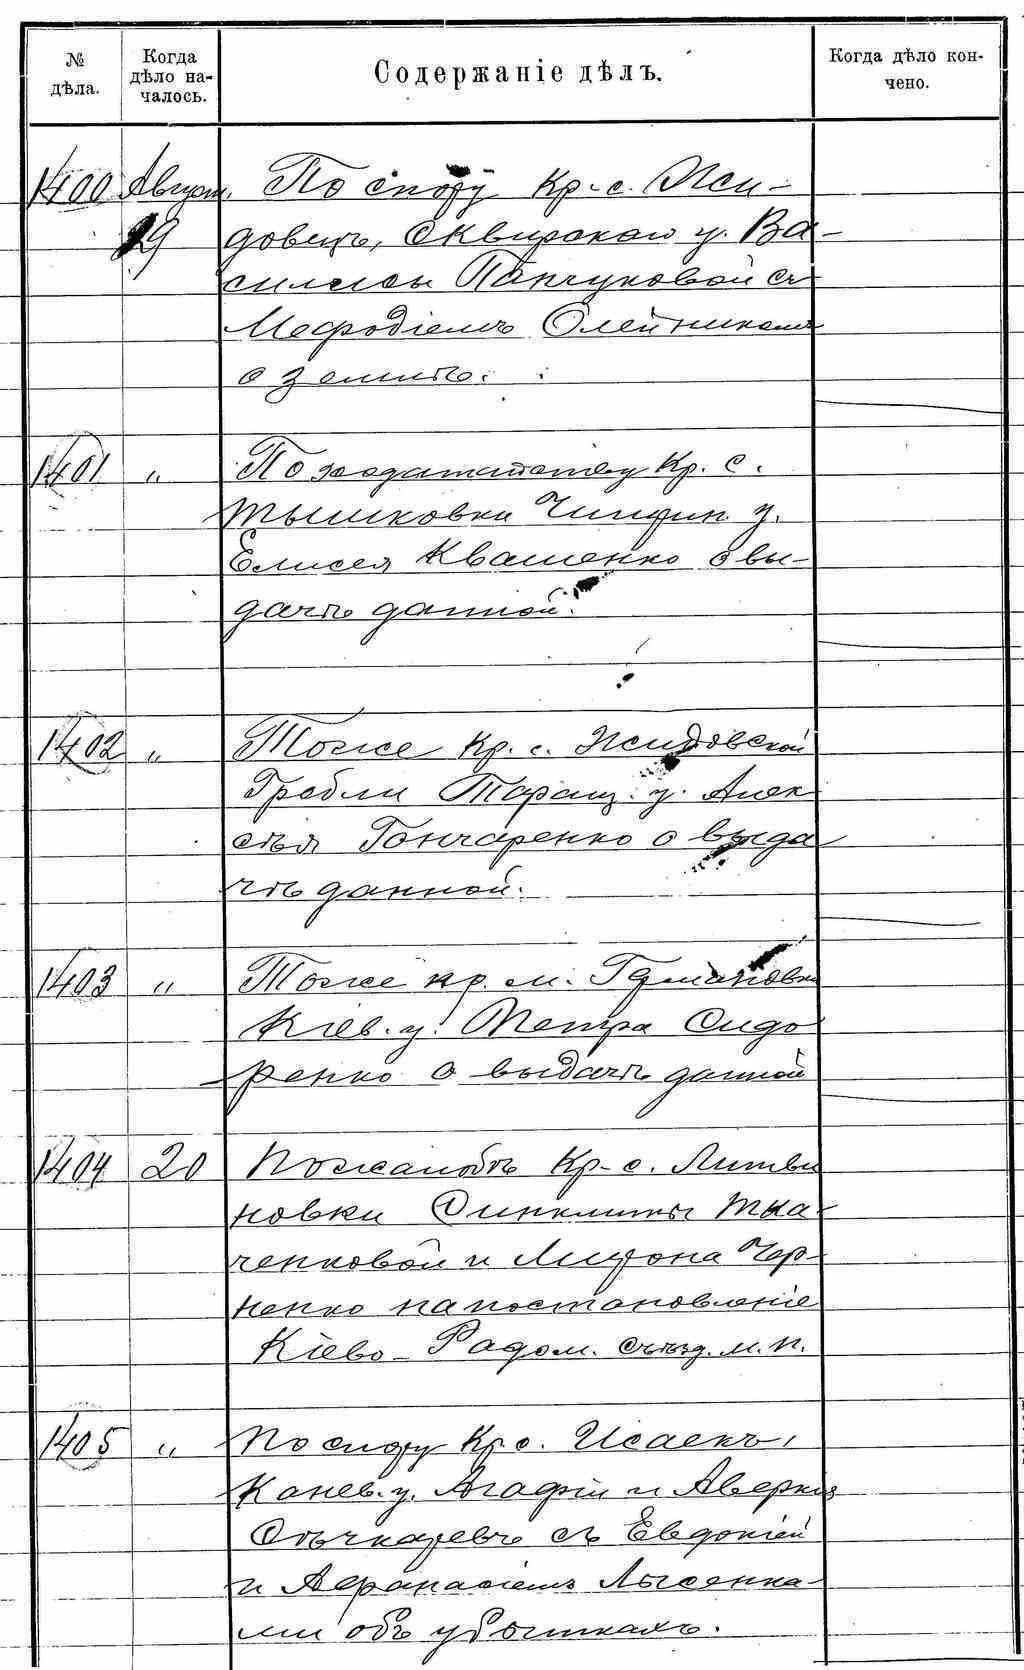 № дѣла. Когда дѣло на- чалось. Содержаніе дѣлъ. Когда дѣло кон- чено.
1400 Август. По спору Кр-с. Жи-
19 довецъ, Сквирскаго у. Ва-
силисы Панчуковой съ
Мефодіемъ Олейникомъ
о землѣ.
1401 „ По ходатайству Кр. с.
Тышковки Чигирин. у.
Елисея Квашенко о вы-
дачѣ данной.
1402 „ Тоже Кр. с. Жидовской
Гребли Таращ. у. Алек-
сѣя Гончаренко о выда
чѣ данной.
1403 „ Тоже кр. м. Германовки
Кіев. у. Петра Сидо
ренко о выдачѣ данной
1404 20 По жалобѣ Кр-с. Литви
новки Синклиты Тка-
ченковой и Мирона Чер-
ненко на постановленіе
Кіево-Радом. съѣзд. м. п.
1405 „ По спору Кр. с. Исаекъ,
Канев. у. Агафіи и Аверкія
с Евдокіей
и Афанасіемъ Лысенка-
ми объ убыткахъ.